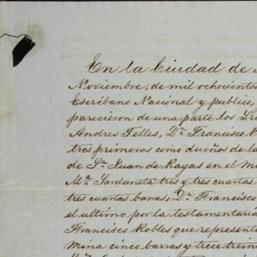 En la Ciudad de
Noviembre, de mil ochocientos
Escribano Nacional y publico,
parecieron de una parte los
Andres Telles, Dn. Francisco
tres primeros como dueños de la
de Sn. Juan de Rayas en el
Ma. Sardaneta tres y tres cuartas
tres cuartas barras, Dn. Francisco
el ultimo por la testamentaria
Francisco Robles que represent
mina cinco barras y trece